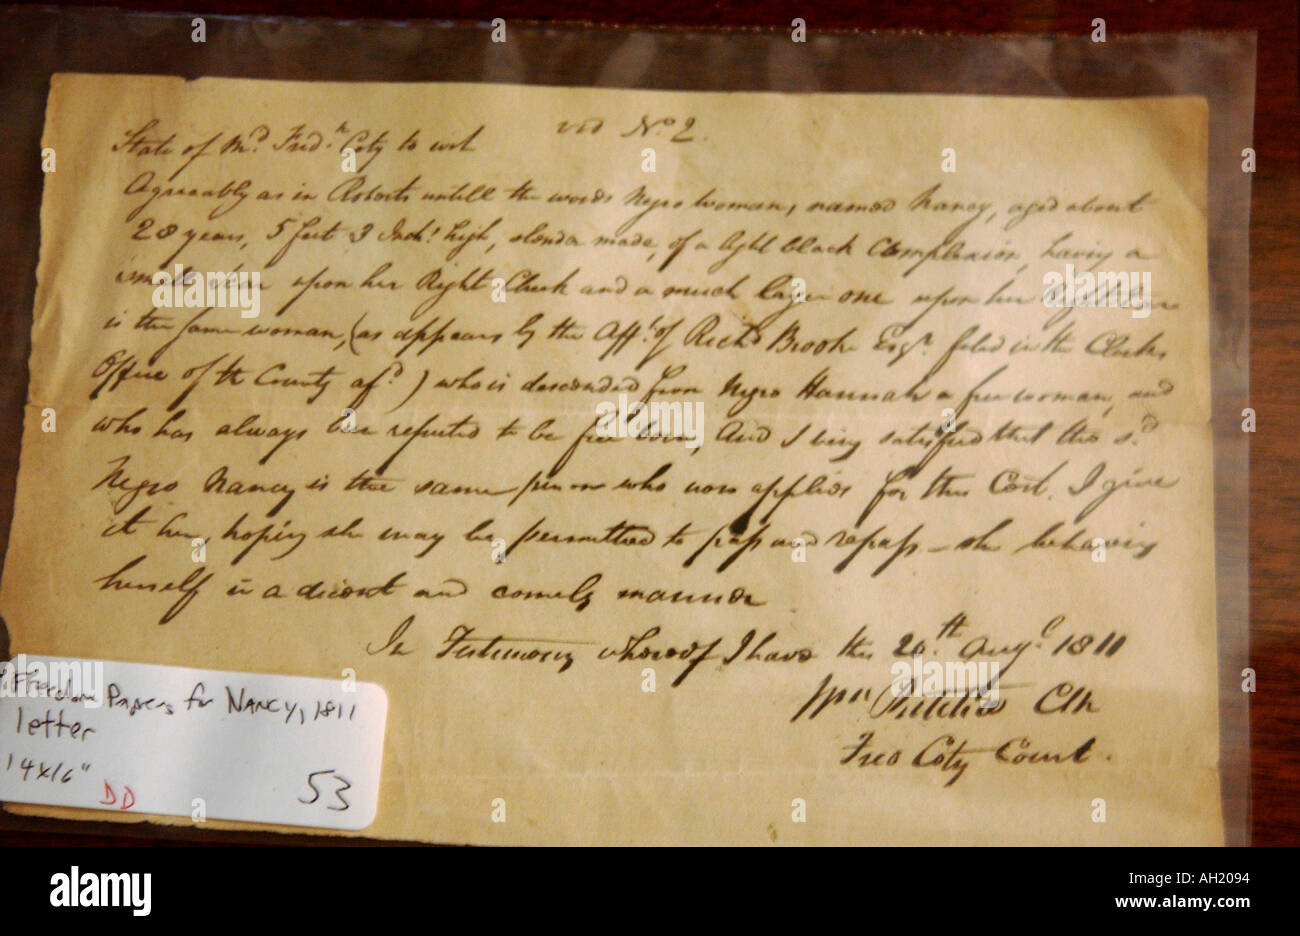 vid No. 2.
State of Md. Fredk. Coty to wit
Agreeably as in Roberts untill the words Negro woman, named Nancy, aged about
28 years, 5 feet 3 Inchs high, slender made, of a light black Complexion, having a
small scar upon her Right Cheek and a much larger one upon her Right
is the same woman, (as appears by the Afft. of Richd Brooke Esqr. filed in the Clerks
Office of the County afd.) who is descended from Negro Hannah a free woman, and
who has always been reputed to be free born, And I being satisfied that the sd
Negro Nancy is the same person who now applies for this Cert. I give
it her, hoping she may be permitted to pass and repass – she behaving
herself in a decent and comely manner
In Testimony whereof I have this 20th. Augt. 1811
Wm Clk
Fred Coty Court.
Freedom Papers for NANCY, 1811
letter
14x16"
DD
53
alamy
Image ID: AH2094
www.alamy.com